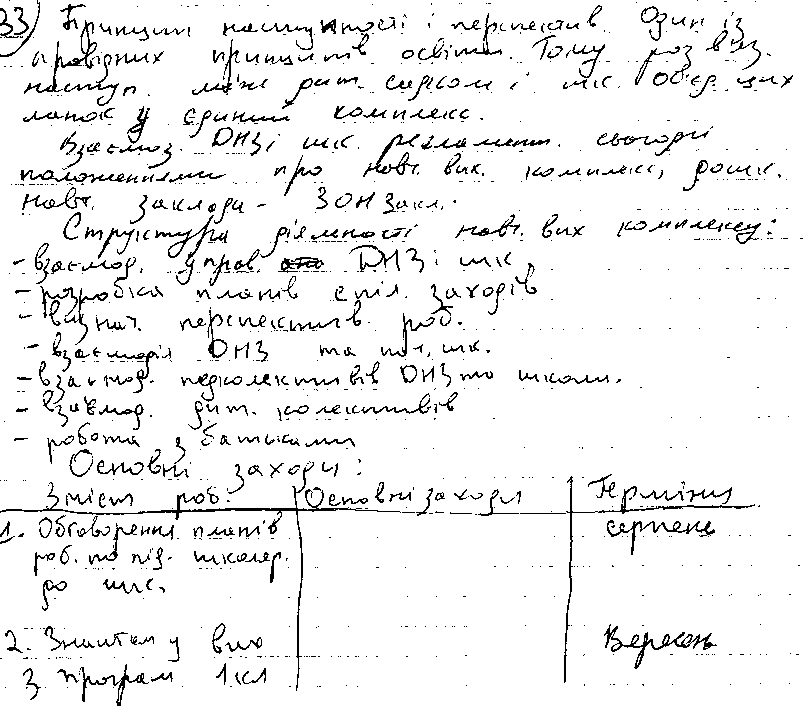 33) Принцип наступності і перспектив. Один із
провідних принципів освіти. Тому розв'яз.
наступ. між дит. садком і шк. об'єд. цих
ланок у єдиний комплекс.
Взаємоз. ДНЗ і шк. регламент. сьогодні
положеннями про навч. вих. комплекс, дошк.
навч. заклади -
Структура діяльності навч. вих комплексу:
- взаємод. управ ДНЗ і шк,
- розробка планів спіл. заходів
- визнач. перспектив роб.
- взаємодія ДНЗ та поч. шк.
- взаємод. педколективів ДНЗ та школи.
- взаємод. дит. колективів
- робота з батьками
Основні заходи:
Зміст роб. Основні заходи Терміни
1. Обговорення планів серпень
роб. по під.
до шк.
2. Знайом у вих Вересень
з програм 1кл